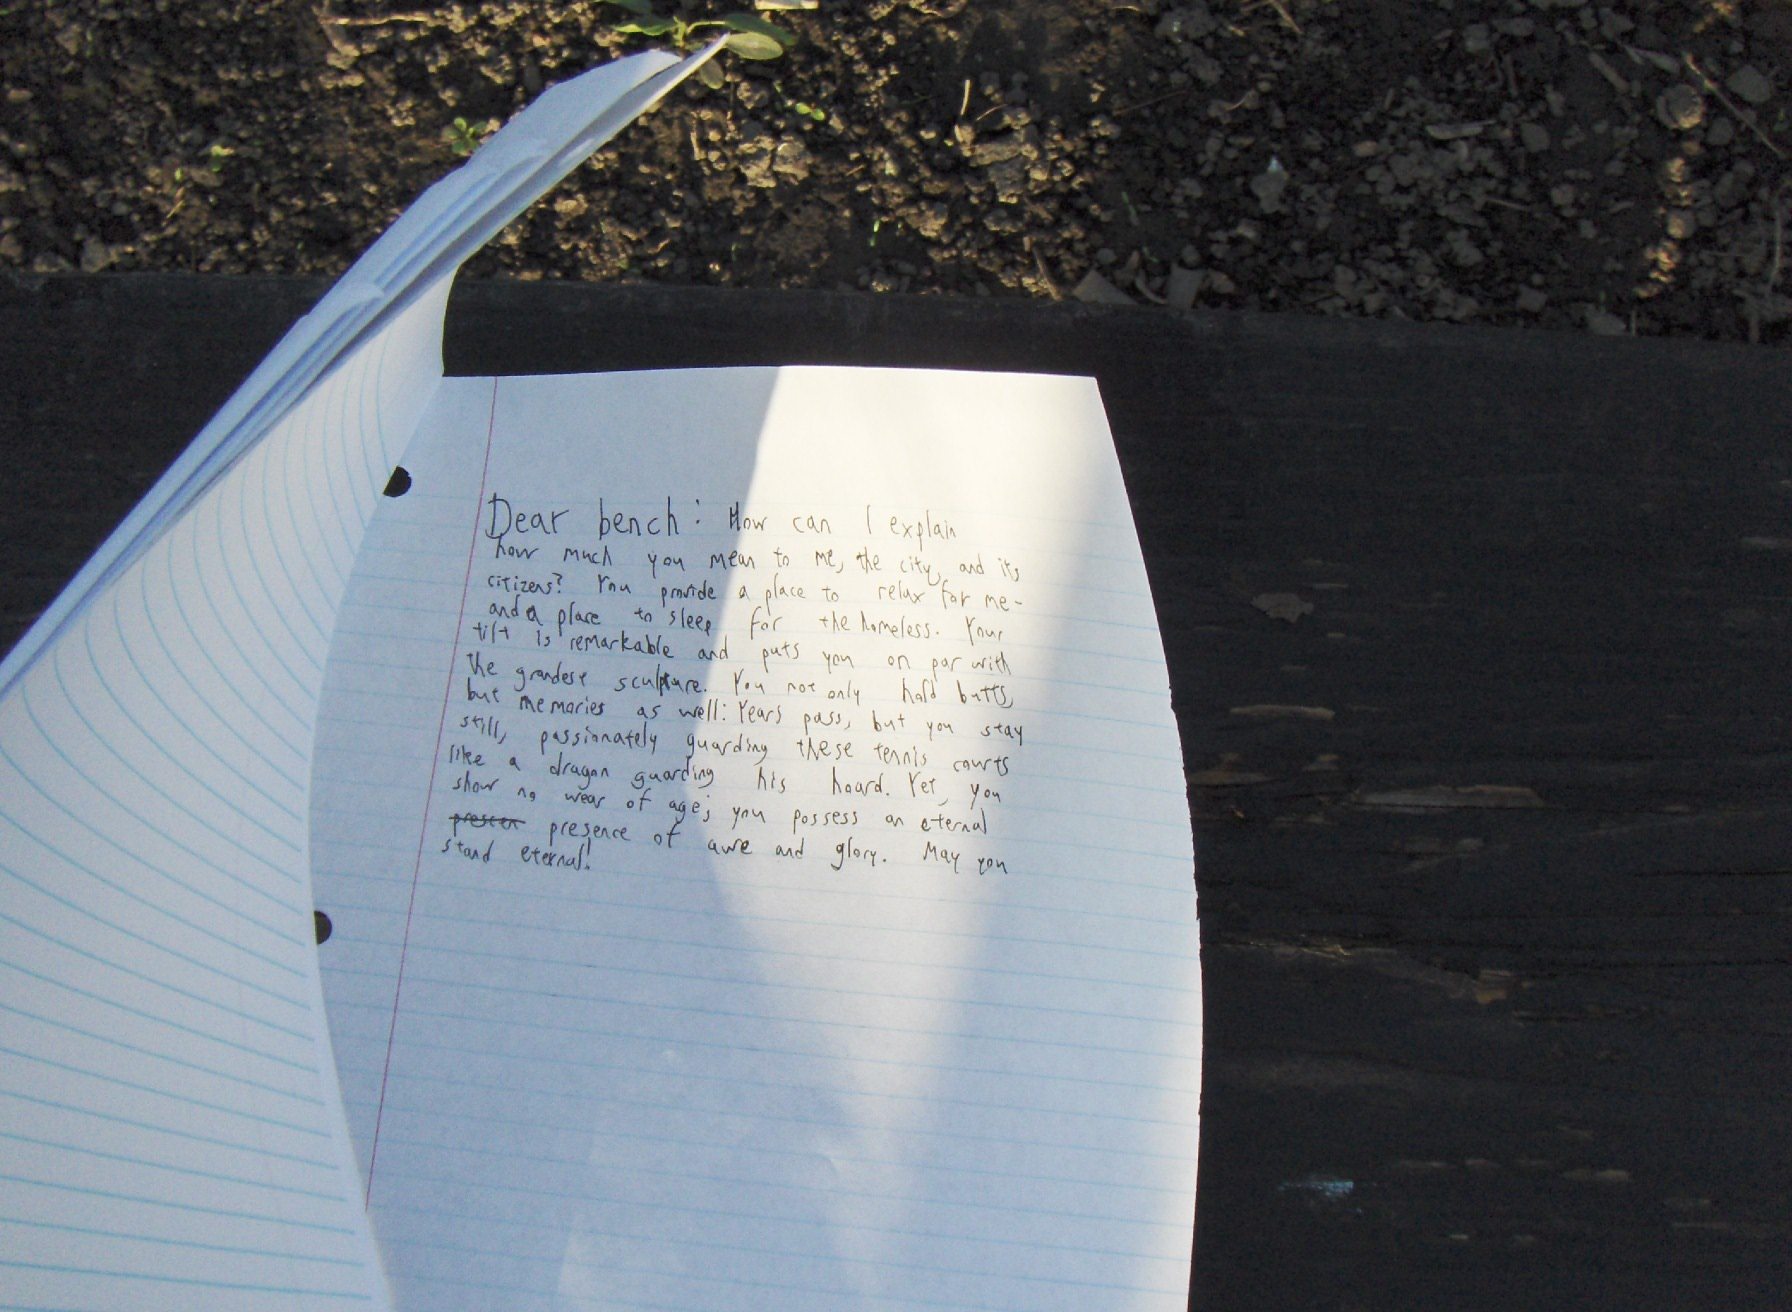 Dear bench: How can I explain
how much you mean to me, the city, and its
citizens? You provide a place to relax for me-
and a place to sleep for the homeless. Your
tilt is remarkable and puts you on par with
the grandest sculpture. You not only hold butts,
but memories as well: Years pass, but you stay
still, passionately guarding these tennis courts
like a dragon guarding his hoard. Yet, you
show no wear of age; you possess an eternal
presen presence of awe and glory. May you
stand eternal!